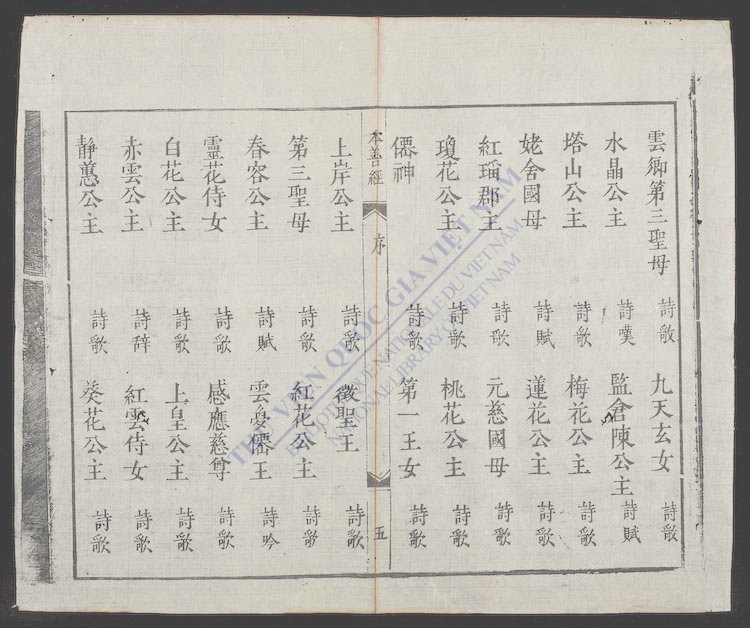 雲鄉第三聖母 詩歌 九天玄女 詩歌
水晶公主 詩嘆 監倉陳公主 詩賦
塔山公主 詩歌 梅花公主 詩歌
姥舍國母 詩賦 蓮花公主 詩歌
紅瑙郡主 詩歌 元慈國母 詩歌
瓊花公主 詩歌 桃花公主 詩歌
僊神 詩歌 第一王女 詩歌
本善經 序 五
上岸公主 詩歌 徵聖王 詩歌
第三聖母 詩歌 紅花公主 詩歌
春容公主 詩賦 雲僊王 詩吟
靈花侍女 詩歌 感應慈尊 詩歌
白花公主 詩歌 上皇公主 詩歌
赤雲公主 詩辞 紅雲侍女 詩歌
靜蕙公主 詩歌 葵花公主 詩歌
THƯ VIỆN QUỐC GIA VIỆT NAM
BIBLIOTHEQUE NATIONALE DU VIETNAM
NATIONAL LIBRARY OF VIETNAM